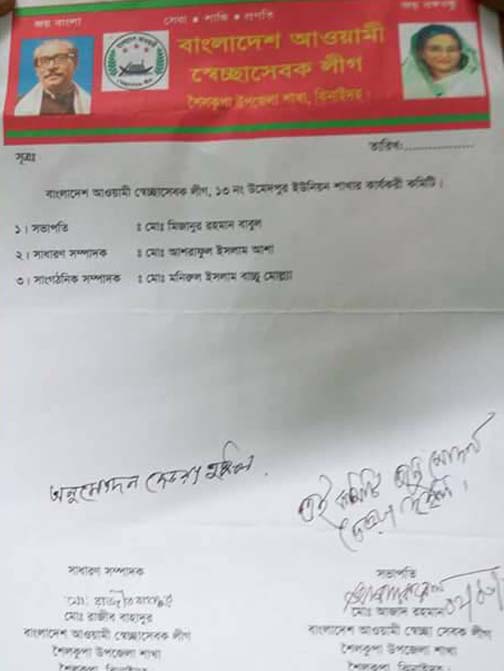 জয় বাংলা
সেবা • শান্তি • প্রগতি
জয় বঙ্গবন্ধু
বাংলাদেশ আওয়ামী
স্বেচ্ছাসেবক লীগ
শৈলকুপা উপজেলা শাখা, ঝিনাইদহ।
সূত্রঃ
তারিখ:................
বাংলাদেশ আওয়ামী স্বেচ্ছাসেবক লীগ, ১৩ নং উমেদপুর ইউনিয়ন শাখার কার্যকরী কমিটি।
১। সভাপতি ঃ মোঃ মিজানুর রহমান বাবুল
২। সাধারণ সম্পাদক ঃ মোঃ আশরাফুল ইসলাম আশা
৩। সাংগঠনিক সম্পাদক ঃ মোঃ মনিরুল ইসলাম বাচ্চু মোল্ল্যা
অনুমোদন দেওয়া হইল।
এই কমিটি অনুমোদন
দেওয়া হইল।
সাধারণ সম্পাদক
মোঃ রাজীব বাহাদুর
বাংলাদেশ আওয়ামী স্বেচ্ছাসেবক লীগ
শৈলকুপা উপজেলা শাখা
শৈলকুপা, ঝিনাইদহ।
সভাপতি
মোঃ আজাদ রহমান
বাংলাদেশ আওয়ামী স্বেচ্ছা সেবক লীগ
শৈলকুপা উপজেলা শাখা
শৈলকুপা, ঝিনাইদহ।